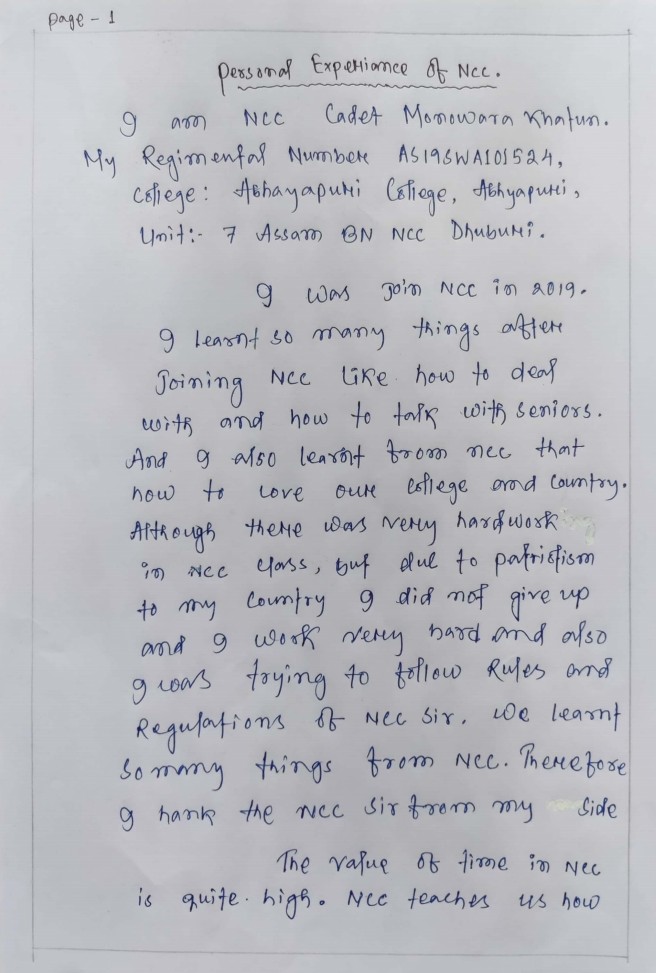 Page - 1
Personal Experiance of NCC.
I am NCC Cadet Monowara Khatun.
My Regimental Number AS19SWA101524,
College: Abhayapuri College, Abhyapuri,
Unit:- 7 Assam BN NCC Dhuburi.
I was Join NCC in 2019.
I learnt so many things after
Joining NCC like how to deal
with and how to talk with seniors.
And I also learnt from ncc that
how to love our College and Country.
Although there was very hardwork
in NCC class, but due to patriotism
to my Country I did not give up
and I work very hard and also
I was trying to follow Rules and
Regulations of NCC Sir. We learnt
so many things from NCC. Therefore
I hank the NCC Sir from my side
The value of time in NCC
is quite high. NCC teaches us how